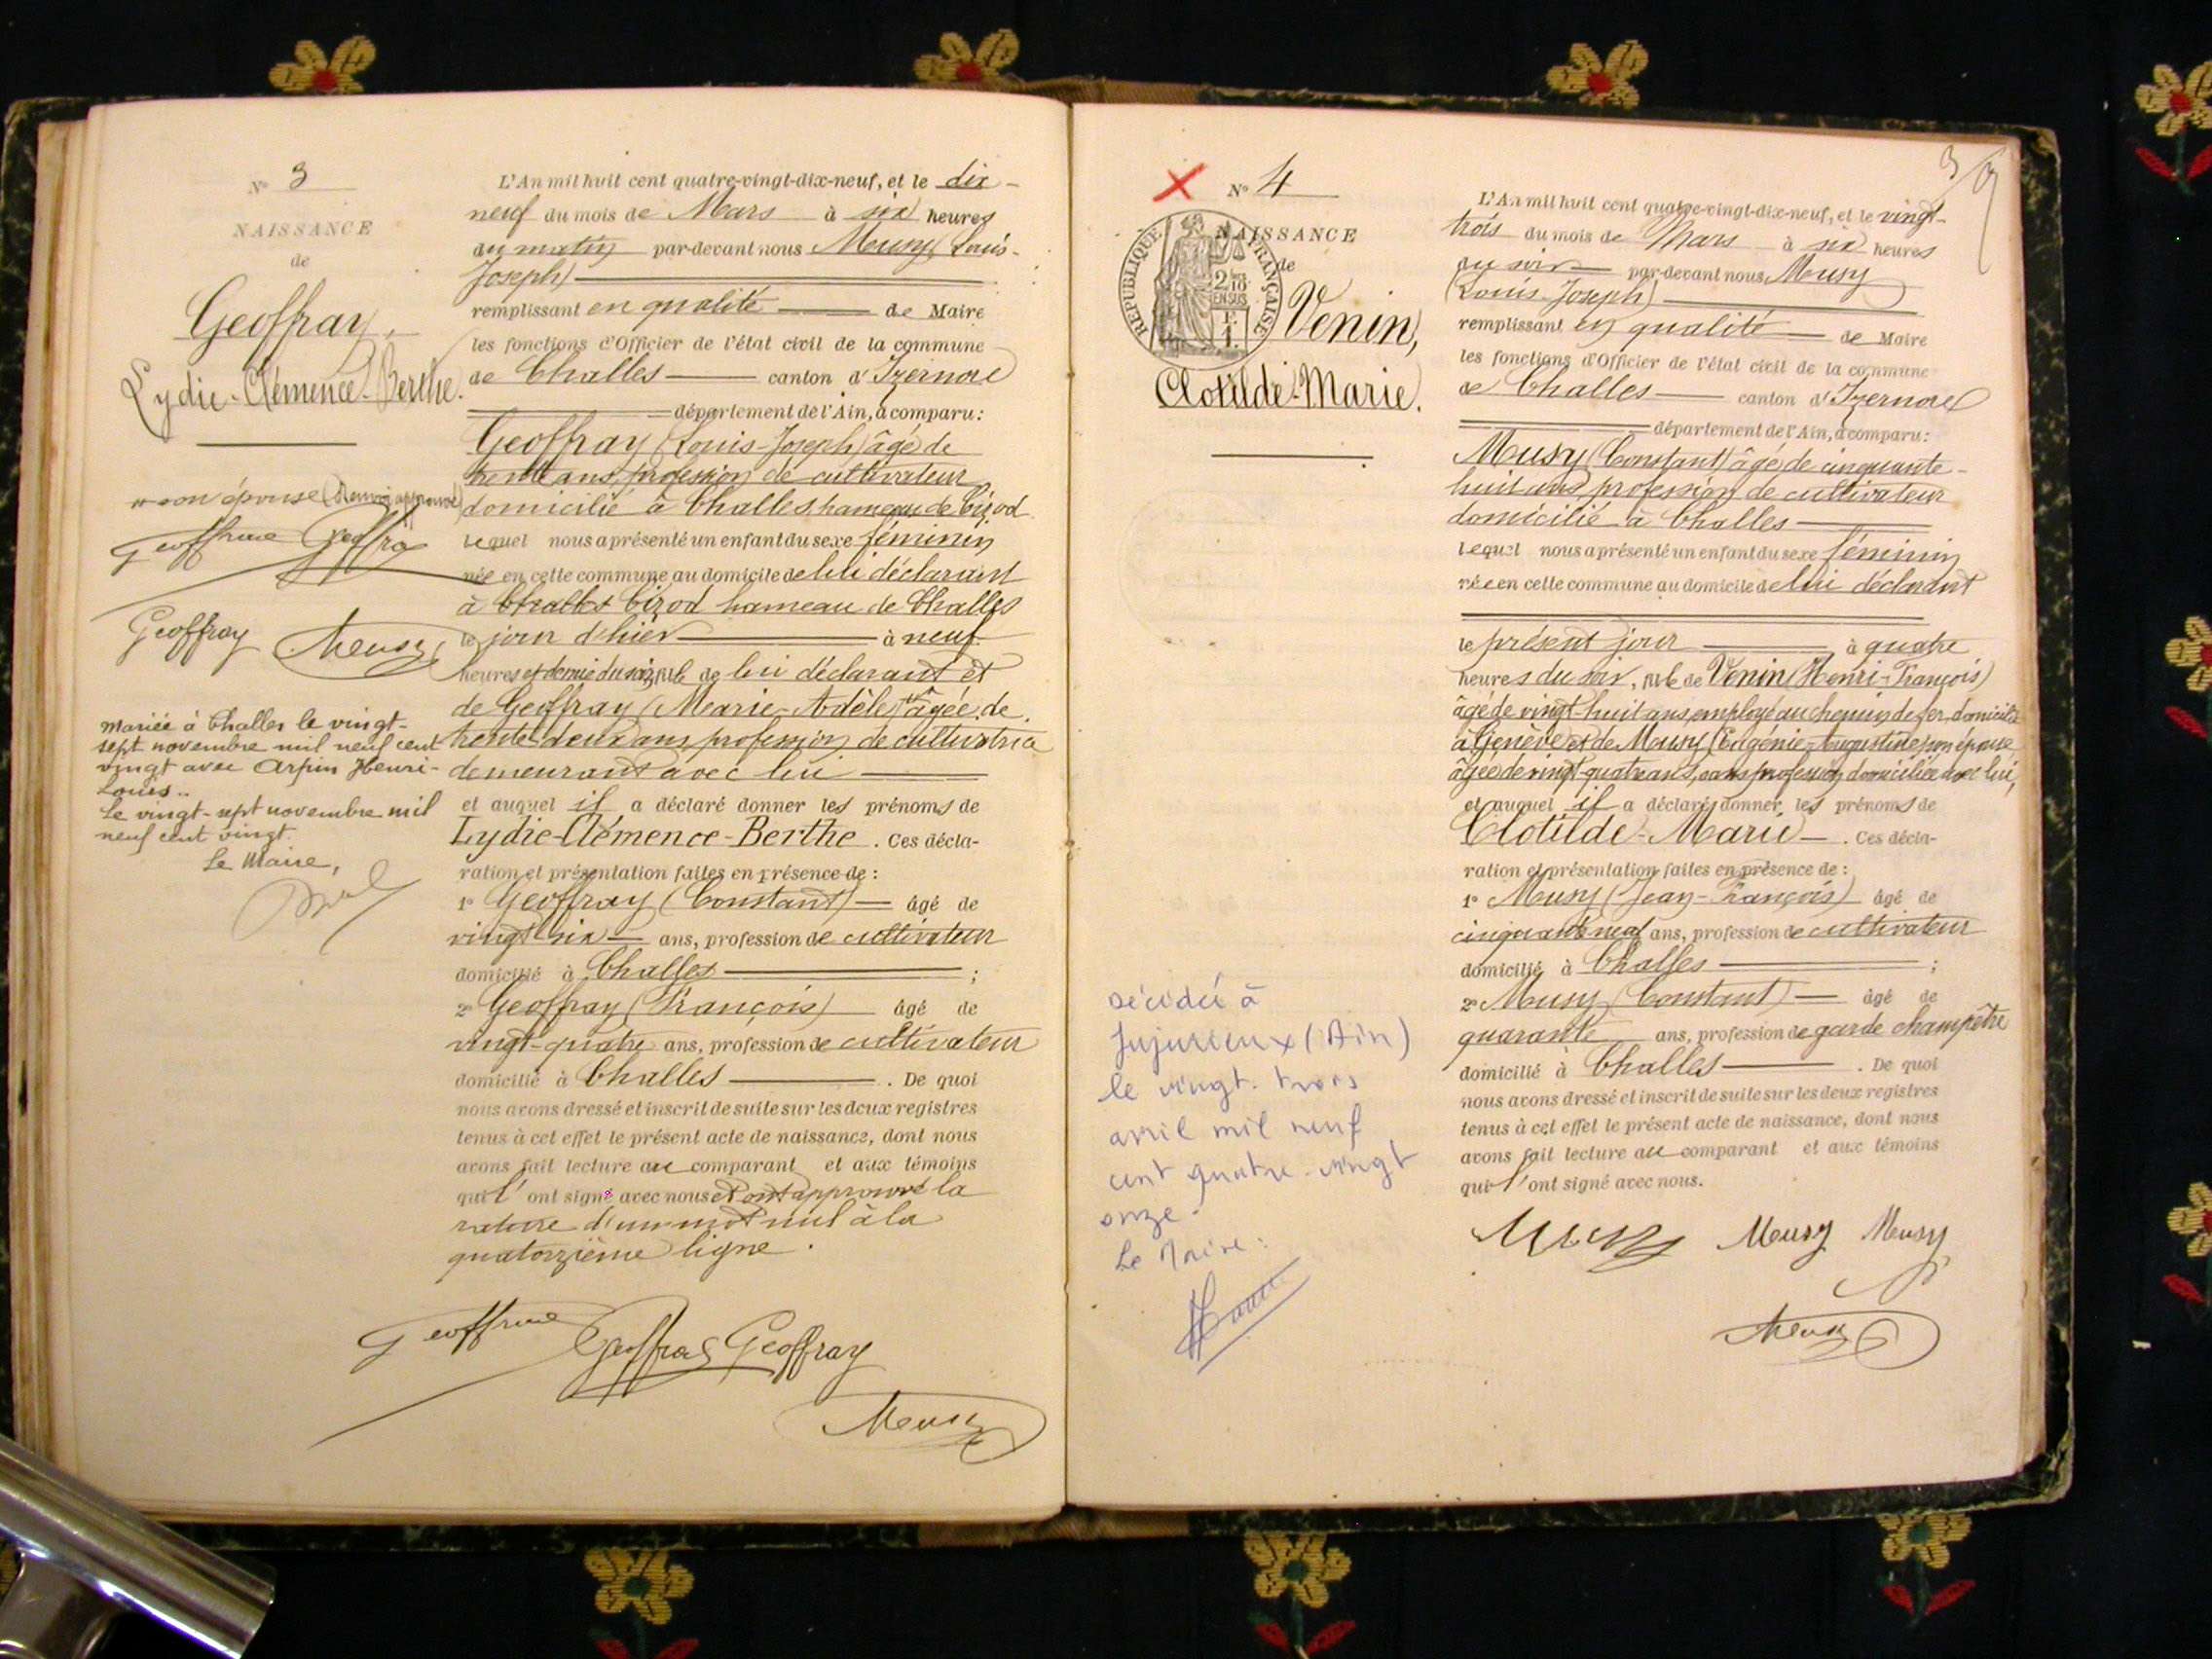 N° 3
NAISSANCE
de
Geoffray,
Lydie-Clémence-Berthe.
son épouse (Renvoi approuvé)
Geoffray
Geoffray Meusy
mariée à Challes le vingt-
sept novembre mil neuf cent
vingt avec Arpin Henri-
Louis..
Le vingt-sept novembre mil
neuf cent vingt.
Le Maire,
L'An mil huit cent quatre-vingt-dix-neuf, et le dix-
neuf du mois de Mars à six heures
du matin par-devant nous Meusy (Louis-
Joseph)
remplissant en qualité de Maire
les fonctions d'Officier de l'état civil de la commune
de Challes canton d'Izernore
département de l'Ain, a comparu:
Geoffray (Louis-Joseph) âgé de
trente ans, profession de cultivateur
domicilié à Challes hameau de Cizod
lequel nous a présenté un enfant du sexe féminin
née en cette commune au domicile de lui déclarant
à Challes Cizod hameau de Challes
le jour d'hier à neuf
heures et demie du soir, fille de lui déclarant et
de Geoffray (Marie-Adèle) âgée de
trente-deux ans profession de cultivatrice
demeurant avec lui
et auquel il a déclaré donner les prénoms de
Lydie-Clémence-Berthe. Ces décla-
ration et présentation faites en présence de :
1° Geoffray (Constant) âgé de
vingt-six ans, profession de cultivateur
domicilié à Challes ;
2° Geoffray (François) âgé de
vingt-quatre ans, profession de cultivateur
domicilié à Challes . De quoi
nous avons dressé et inscrit de suite sur les deux registres
tenus à cet effet le présent acte de naissance, dont nous
avons fait lecture au comparant et aux témoins
qui l'ont signé avec nous et ont approuvé la
rature d'un mot nul à la
quatorzième ligne.
Geoffray Geoffray
Meusy
N° 4
NAISSANCE
de
RÉPUBLIQUE FRANÇAISE
2/10
EN SUS
Venin,
Clotilde-Marie.
décédée à
Jujurieux (Ain)
le vingt-trois
avril mil neuf
cent quatre-vingt
onze.
Le Maire:
3
L'An mil huit cent quatre-vingt-dix-neuf, et le vingt-
trois du mois de Mars à six heures
du soir par-devant nous Meusy
(Louis-Joseph)
remplissant en qualité de Maire
les fonctions d'Officier de l'état civil de la commune
de Challes canton d'Izernore
département de l'Ain, a comparu:
Musy (Constant) âgé de cinquante-
huit ans profession de cultivateur
domicilié à Challes
lequel nous a présenté un enfant du sexe féminin
née en cette commune au domicile de lui déclarant
le présent jour à quatre
heures du soir, fille de Venin (Henri-François)
âgé de vingt-huit ans, employé au chemin de fer, domicilié
à Genève et de Musy (Eugénie-Augustine) son épouse
âgée de vingt-quatre ans, sans profession, domiciliée avec lui,
et auquel il a déclaré donner les prénoms de
Clotilde-Marie . Ces décla-
ration et présentation faites en présence de :
1° Musy (Jean-François) âgé de
cinquante neuf ans, profession de cultivateur
domicilié à Challes ;
2° Musy (Constant) âgé de
quarante ans, profession de garde champêtre
domicilié à Challes . De quoi
nous avons dressé et inscrit de suite sur les deux registres
tenus à cet effet le présent acte de naissance, dont nous
avons fait lecture au comparant et aux témoins
qui l'ont signé avec nous.
Musy Meusy Meusy
Meusy